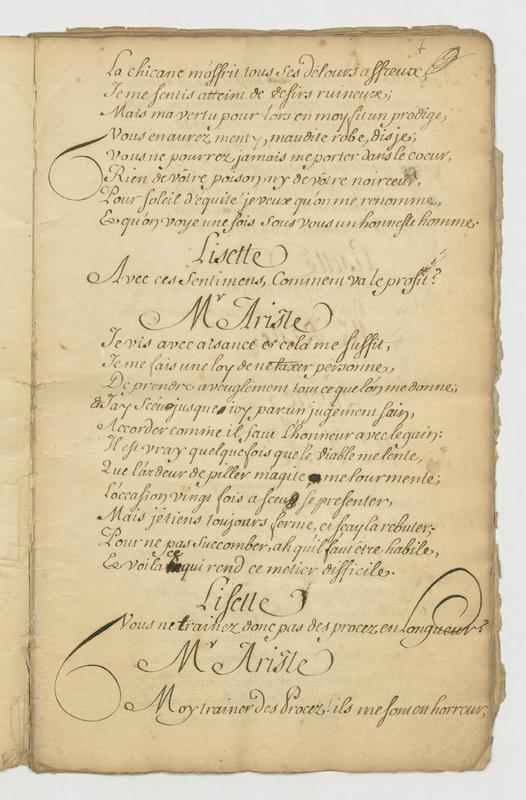 7
La chicane m'offrit tous ses détours affreux,
Je me sentis atteint de desirs ruineux;
Mais ma vertu pour lors en moy fit un prodige,
Vous en aurez menty, maudite robe, dis je;
Vous ne pourrez jamais me porter dans le coeur,
Rien de vôtre poison ny de vôtre noirceur,
Pour soleil d'equité je veux qu'on me renomme,
Et qu'on voye une fois sous vous un honneste homme.
Lisette
Avec ces sentimens, Comment va le profit?
Mr Ariste
Je vis avec aisance et cela me suffit,
Je me fais une loy de ne taxer personne,
De prendre aveuglément tout ce que l'on me donne;
Et J'ay sceu jusque icy par un jugement sain,
Accorder comme il faut L'honneur avec le gain:
Il est vray quelque fois que le diable me tente,
Que l'ardeur de piller m'agite me tourmente;
L'occasion vingt fois a sceu se presenter,
Mais je tiens toujours ferme, et scay la rebuter;
Pour ne pas succomber, ah qu'il faut être habile,
Et voila ce qui rend ce métier difficile.
Lisette
Vous ne trainez donc pas des procez en longueur?
Mr Ariste
Moy trainer des Procez! ils me sont en horreur;